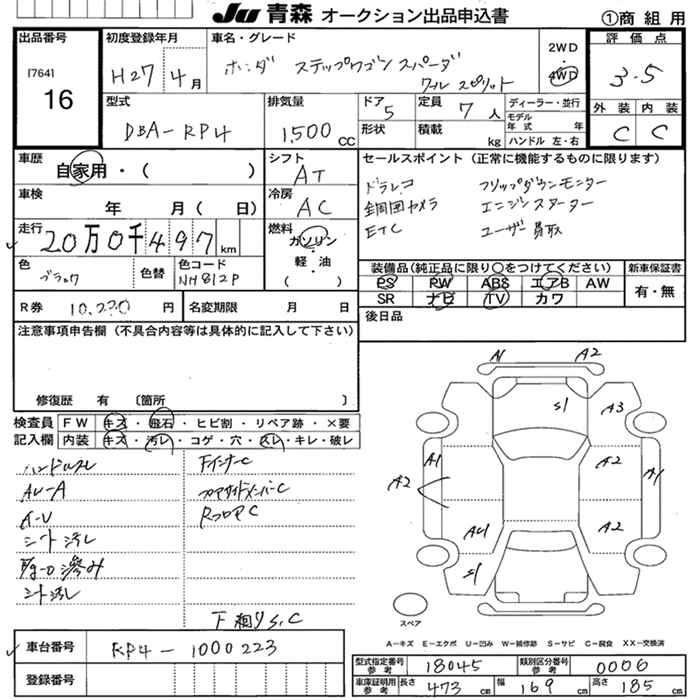 JU 青森 オークション出品申込書
①商組用
出品番号
[764]
16
初度登録年月
H27年4月
車名・グレード
ホンダ ステップワゴン スパーダ
クール スピリット
2WD
4WD
評価点
3.5
外装 内装
C C
型式
DBA-RP4
排気量
1,500 CC
ドア
5
形状
定員
7人
積載
kg
ディーラー・並行
モデル
年式 年
ハンドル 左・右
車歴
自家用・( )
シフト
AT
車検
年 月( 日)
冷房
AC
走行
20万0千497km
燃料
ガソリン
軽・油
( )
色
ブラック
色替
色コード
NH812P
R券
円
名変期限 月 日
セールスポイント (正常に機能するものに限ります)
ドラレコ フリップダウンモニター
全周囲カメラ エンジンスターター
ETC ユーザー買取
装備品(純正品に限り○をつけてください)
新車保証書
PS PW ABS エアB AW
SR ナビ TV カワ
有・無
後日品
注意事項申告欄 (不具合内容等は具体的に記入して下さい)
修復歴 有 〔箇所 〕
検査員 FW キズ・飛石・ヒビ割・リペア跡・×要
記入欄 内装 キズ・汚レ・コゲ・穴・スレ・キレ・破レ
ハンドルスレ FインナーC
AU-A フロアサイドメンバーC
A-U RフロアC
シート汚し
滲み
汚し
F廻りS,C
車台番号
RP4-1000223
登録番号
A1 A2
S1 A3
A1 A2 A1
A2
A2
S1
スペア
A-キズ E-エクボ U-凹み W-補修跡 S-サビ C-腐食 XX-交換済
型式指定番号
参考
18045
類別区分番号
参考
0006
車庫証明用
参考
長さ 473cm 幅 169cm 高さ 185cm